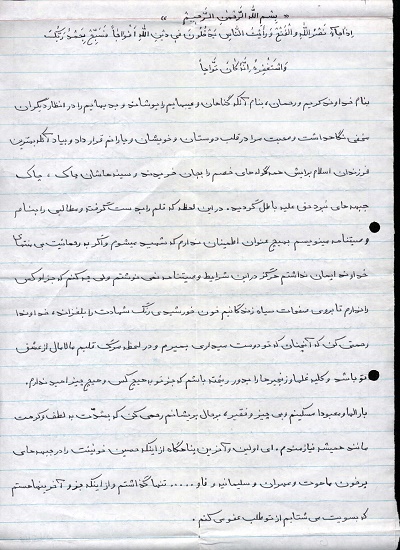 « بسم الله الرحمن الرحیم »
اذا جاء نصر الله و الفتح و رأیت الناس یدخلون فی دین الله افواجاً فسبح بحمد ربک
و استغفره انه کان تواباً
بنام خداوند کریم و رحمان، بنام آنکه گناهان و عیبهایم را پوشاند و بدیهایم را در انظار دیگران
مخفی نگاهداشت و محبت مرا در قلب دوستان و خویشان و یارانم قرار داد و بیاد آنکه بهترین
فرزندان اسلام برایش همه گوله های خصم را بجان خریدند و سینه هاشان چاک ، چاک
جبهه های نبرد حق علیه باطل گردید. در این لحظه که قلم را بدست گرفته و مطالبی را بنام
وصیتنامه مینویسم بهیچ عنوان اطمینان ندارم که شهید میشوم و اگر به رحمانیت بی منتهای
خداوند ایمان نداشتم هرگز در این شرایط وصیتنامه نمی نوشتم ولی چه کنم که جز او کس
را ندارم تا بروی صفحات سیاه زندگانیم خون خورشیدی رنگ شهادت را بلغزاند، خداوندا
رحمتی کن که آنچنان که تو دوست میداری بمیرم و در لحظه مرگ قلبم مالامال از عشق
تو باشد و کلیه غلها و زنجیرها را بدور ریخته باشم که جز تو به هیچ کس و هیچ چیز امید ندارم.
بارالها، معبودا مسکینم بی چیز و فقیرم، برحال پریشانم رحمی کن که بشدت به لطف و کرمت
مانند همیشه نیازمندم. ای اولین و آخرین پناهگاه از اینکه حسین خونینت را در جبهه های
پرخون ماحوت و مهران و سلیمانیه و فاو ..... تنها گذاشتم و از اینکه جزو آخرینها هستم
که بسویت می شتابم از تو طلب عفو می کنم .